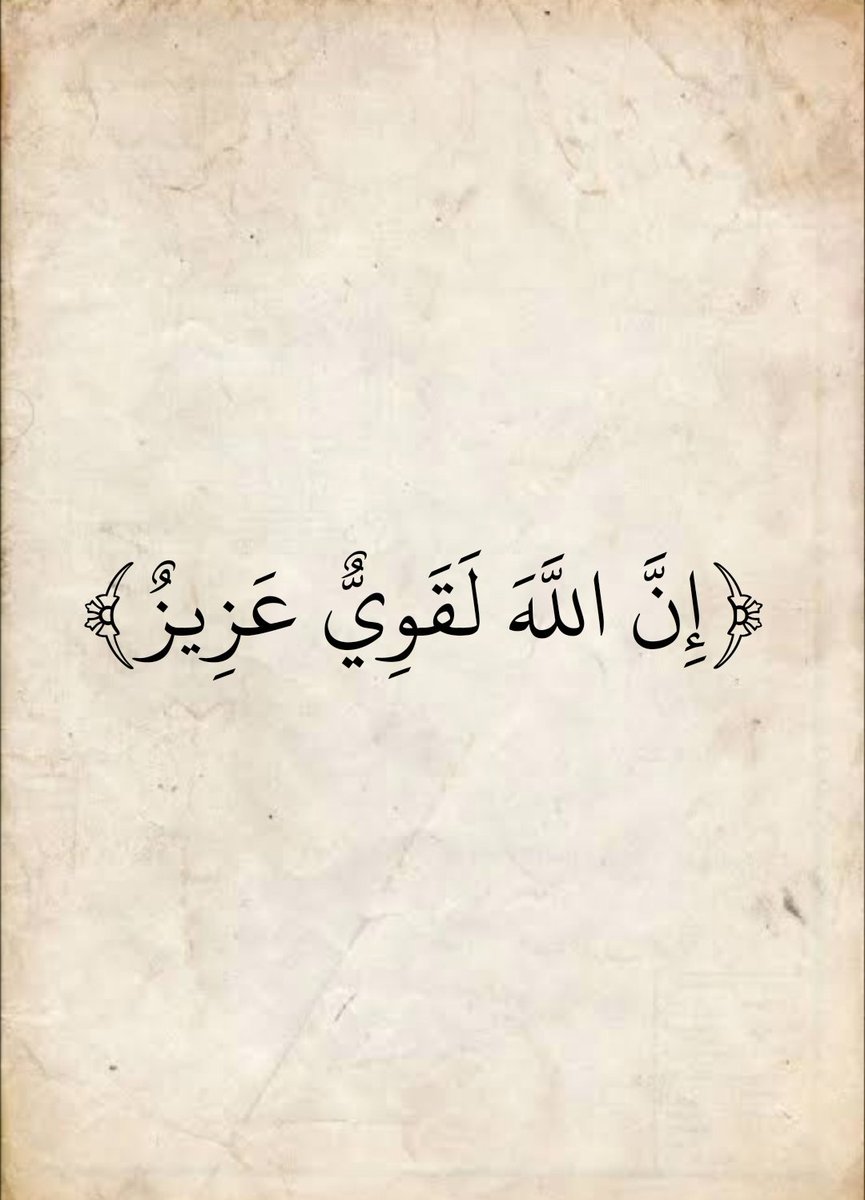 ﴿إِنَّ اللَّهَ لَقَوِيٌّ عَزِيزٌ﴾